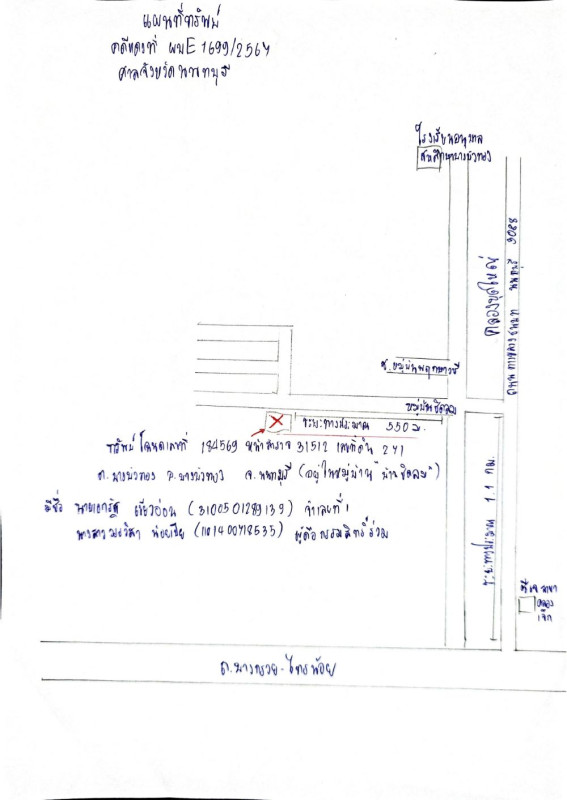 แผนที่ทรัพย์
คดีแดงที่ ผบE1699/2564
ศาลจังหวัดนนทบุรี
โรงเรียนอนุบาล
บางบัวทอง
คลองขุดใหม่
ถนน ทางหลวงชนบท นนทบุรี
ซ.หมู่บ้านพฤกษา
หมู่บ้านชิดลม
ระยะทางประมาณ 550 ม.
ทรัพย์ โฉนดเลขที่ 184569 หน้าสำรวจ 31512 เลขที่ดิน 241
ต.บางบัวทอง อ.บางบัวทอง จ.นนทบุรี (อยู่ในหมู่บ้าน "บ้านชิดลม")
มีชื่อ นายเอกรัฐ เขียวอ่อน (3100501289139) จำเลยที่1
นางสาว น้อยเขีย (1101400718535) ผู้ถือกรรมสิทธิ์ร่วม
ระยะทางประมาณ 1.1 กม.
สาขา
คลอง
เจ๊ก
ถ.บางกรวย-ไทรน้อย